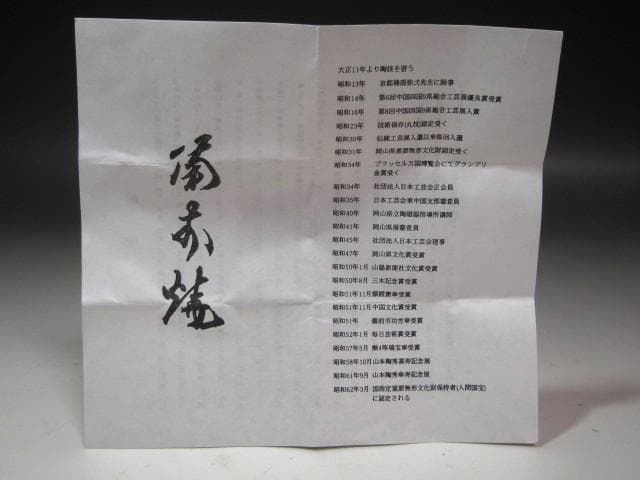 備前焼
大正11年より陶技を習う
昭和13年 京都楠部弥弌先生に師事
昭和14年 第6回中国四国9県総合工芸展優良賞受賞
昭和16年 第8回中国四国9県総合工芸展入賞
昭和23年 技術保存(丸技)認定受く
昭和30年 伝統工芸展入選以来毎回入選
昭和31年 岡山県重要無形文化財認定受く
昭和34年 ブラッセル万国博覧会にてグランプリ
金賞受く
昭和34年 社団法人日本工芸会正会員
昭和35年 日本工芸会東中国支部審査員
昭和40年 岡山県立陶磁器指導所講師
昭和41年 岡山県展審査員
昭和45年 社団法人日本工芸会理事
昭和47年 岡山県文化賞受賞
昭和50年1月 山陽新聞社文化賞受賞
昭和50年8月 三木記念賞受賞
昭和51年11月 紫綬褒章受賞
昭和51年11月 中国文化賞受賞
昭和51年 備前市功労章受賞
昭和52年1月 毎日芸術賞受賞
昭和57年5月 勲4等瑞宝章受賞
昭和58年10月 山本陶秀喜寿記念展
昭和61年9月 山本陶秀傘寿記念展
昭和62年3月 国指定重要無形文化財保持者(人間国宝)
に認定される